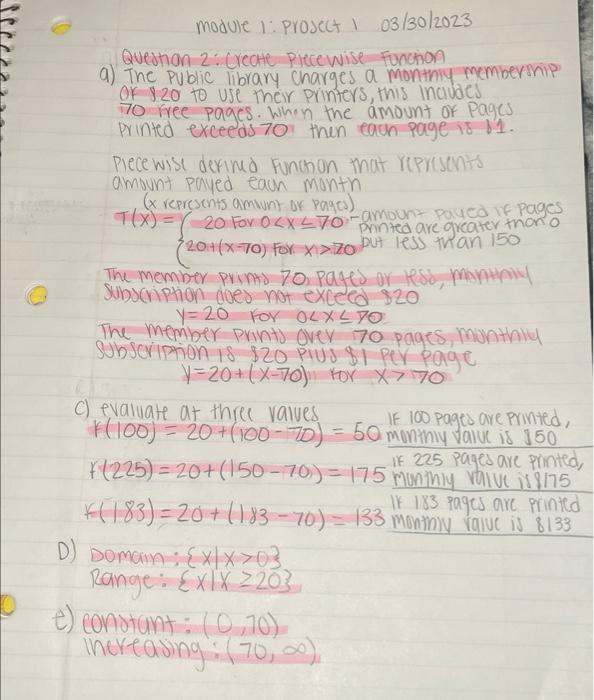 module 1: Project 1 03/30/2023
Question 2: Create Piecewise Function
a) The Public library charges a monthly membership
of $20 to use their printers, this includes
70 free pages. When the amount of pages
printed exceeds 70 then each page is $1.
Piecewise defined Function that represents
amount payed each month
(x represents amount of pages)
T(x) = { 20 For 0<x≤70 - amount payed if pages
printed are greater than 0
{ 20+(x-70) For x>70 but less than 150
The member prints 70 pages or less, monthly
subscription does not exceed $20
y=20 for 0<x≤70
The member prints over 70 pages, monthly
subscription is $20 Plus $1 per page
y=20+(x-70) for x>70
c) evaluate at three values
f(100) = 20+(100-70) = 50 If 100 pages are printed, monthly value is $50
f(225) = 20+(150-70) = 175 if 225 pages are printed, monthly value is $175
f(183) = 20+(183-70) = 133 If 183 pages are printed monthly value is $133
D) Domain: {x|x>0}
Range: {x|x≥20}
e) constant: (0,70)
increasing: (70,∞)